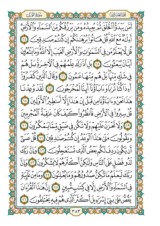 أَمَّن يَبْدَؤُا الْخَلْقَ ثُمَّ يُعِيدُهُ وَمَن يَرْزُقُكُم مِّنَ السَّمَاءِ وَالْأَرْضِ
أَءِلَٰهٌ مَّعَ اللَّهِ قُلْ هَاتُوا بُرْهَانَكُمْ إِن كُنتُمْ صَادِقِينَ قُل لَّا يَعْلَمُ
مَن فِي السَّمَاوَاتِ وَالْأَرْضِ الْغَيْبَ إِلَّا اللَّهُ وَمَا يَشْعُرُونَ
أَيَّانَ يُبْعَثُونَ بَلِ ادَّارَكَ عِلْمُهُمْ فِي الْآخِرَةِ بَلْ هُمْ
فِي شَكٍّ مِّنْهَا بَلْ هُم مِّنْهَا عَمُونَ وَقَالَ الَّذِينَ كَفَرُوا
أَءِذَا كُنَّا تُرَابًا وَآبَاؤُنَا أَئِنَّا لَمُخْرَجُونَ لَقَدْ وُعِدْنَا
هَٰذَا نَحْنُ وَآبَاؤُنَا مِن قَبْلُ إِنْ هَٰذَا إِلَّا أَسَاطِيرُ الْأَوَّلِينَ
قُلْ سِيرُوا فِي الْأَرْضِ فَانظُرُوا كَيْفَ كَانَ عَاقِبَةُ الْمُجْرِمِينَ
وَلَا تَحْزَنْ عَلَيْهِمْ وَلَا تَكُن فِي ضَيْقٍ مِّمَّا يَمْكُرُونَ
وَيَقُولُونَ مَتَىٰ هَٰذَا الْوَعْدُ إِن كُنتُمْ صَادِقِينَ قُلْ عَسَىٰ
أَن يَكُونَ رَدِفَ لَكُم بَعْضُ الَّذِي تَسْتَعْجِلُونَ وَإِنَّ رَبَّكَ
لَذُو فَضْلٍ عَلَى النَّاسِ وَلَٰكِنَّ أَكْثَرَهُمْ لَا يَشْكُرُونَ وَإِنَّ
رَبَّكَ لَيَعْلَمُ مَا تُكِنُّ صُدُورُهُمْ وَمَا يُعْلِنُونَ وَمَا مِنْ غَائِبَةٍ
فِي السَّمَاءِ وَالْأَرْضِ إِلَّا فِي كِتَابٍ مُّبِينٍ إِنَّ هَٰذَا الْقُرْآنَ
يَقُصُّ عَلَىٰ بَنِي إِسْرَائِيلَ أَكْثَرَ الَّذِي هُمْ فِيهِ يَخْتَلِفُونَ
٣٨٣